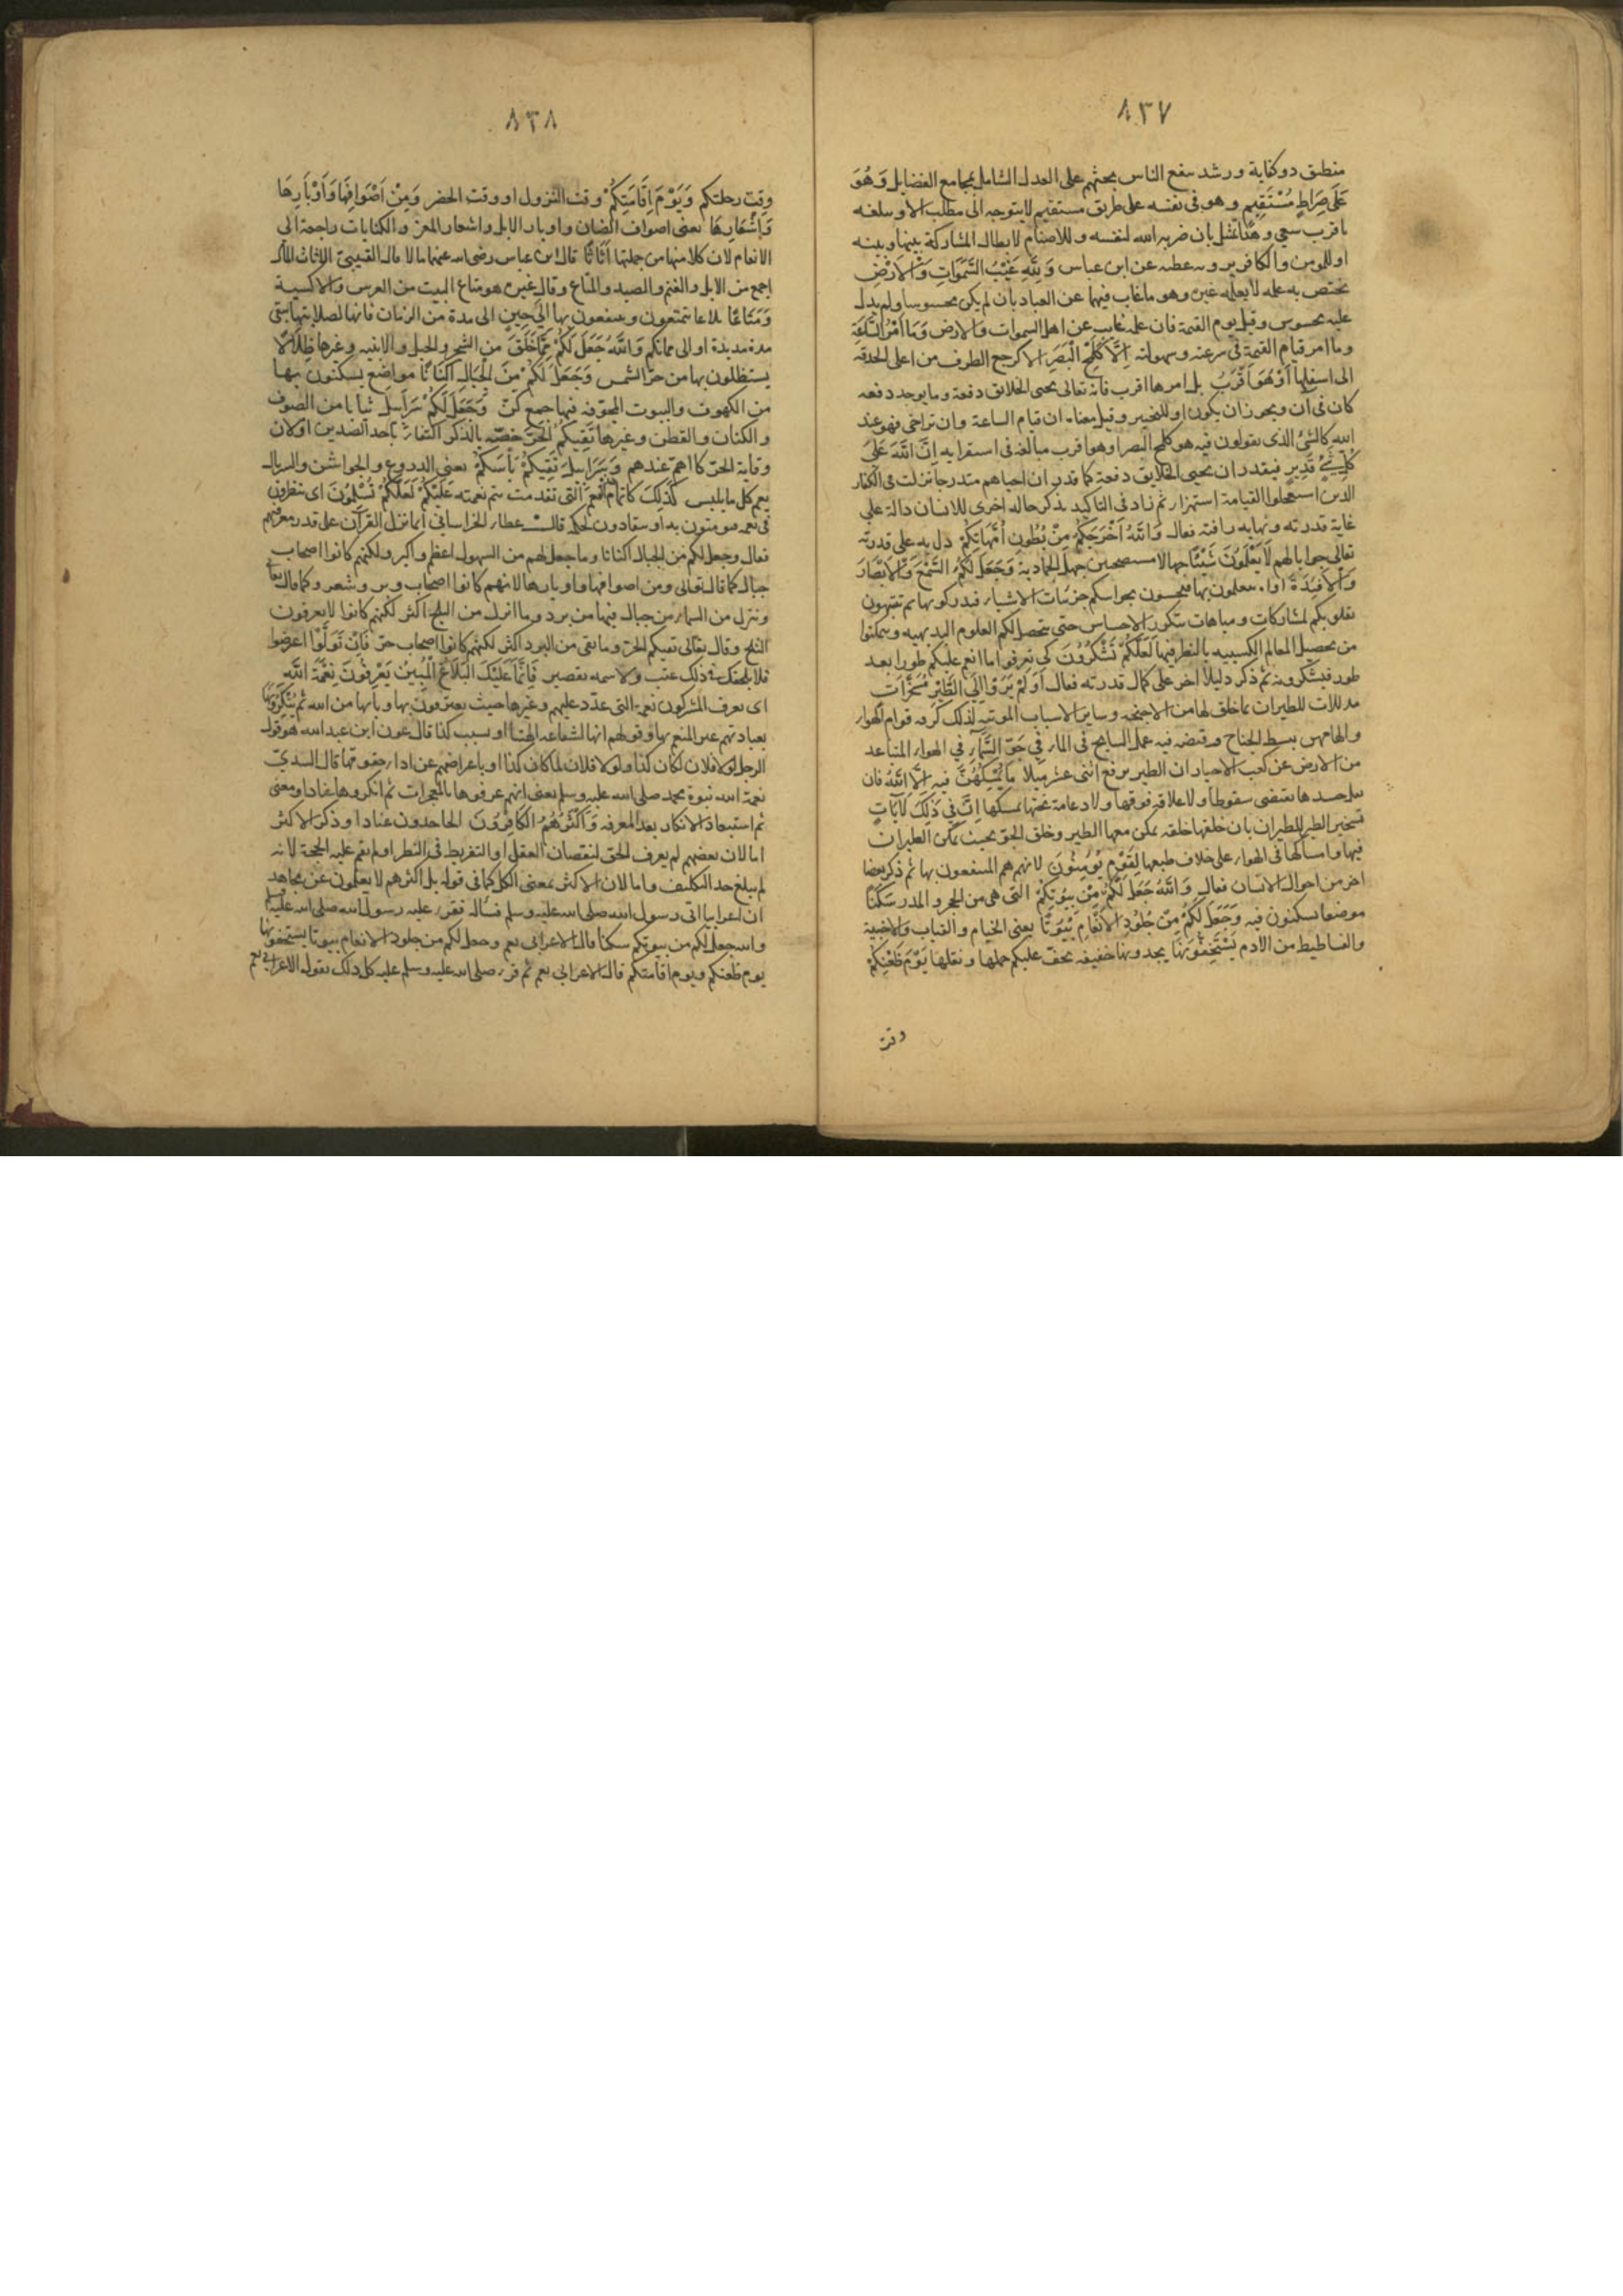 ٨٣٧
منطيق ذو كفاية ورشد ينفع الناس بحثهم على العدل الشامل لمجامع الفضايل وَهُوَ
عَلَى صِرَاطٍ مُسْتَقِيمٍ وهو في نفسه على طريق مستقيم لا يتوجه الى مطلب الا ويبلغه
باقرب سعي وهذا تمثيل بان ضربه الله لنفسه وللاصنام لابطال المشاركة بينها وبينه
او للمومن والكافر عن ابن عباس وَلِلَّهِ غَيْبُ السَّمَوَاتِ وَالْاَرْضِ
يختص به علمه لا يعلمه غيره وهو ما غاب فيهما عن العباد بان لم يكن محسوسا ولم يدل
عليه محسوس وقيل يوم القيمة فان علمه غايب عن اهل السموات والارض وَمَا اَمْرُ السَّاعَةِ
وما امر قيام القيمة في سرعته وسهولته اِلَّا كَلَمْحِ الْبَصَرِ الا كرجع الطرف من اعلى الحدقة
الى اسفلها اَوْ هُوَ اَقْرَبُ بل امرها اقرب فانه تعالى يحيى الخلائق دفعة وما يوجد دفعه
كان في آن ويجوز ان يكون او للتخيير وقيل معناه ان قيام الساعة وان تراخى فهو عند
الله كالشئ الذي يقولون فيه هو كلمح البصر او هو اقرب مبالغة في استقرابه اِنَّ اللَّهَ عَلَى
كُلِّ شَيْءٍ قَدِيرٍ فيقدر ان يحيى الخلايق دفعة كما قدر ان احياهم متدرجا نزلت في الكفار
الذين استعجلوا القيامة استهزاء ثم زاد في التاكيد بذكر حاله اخرى للانسان دالة على
غاية قدرته ونهاية رافته فعال وَاللَّهُ اَخْرَجَكُمْ مِنْ بُطُونِ اُمَّهَاتِكُمْ دل به على قدرته
تعالى جوابا لهم لَا يَعْلَمُونَ شَيْئًا جهالا مستصحبين جهل الجمادية وَجَعَلَ لَكُمُ السَّمْعَ وَالْاَبْصَارَ
وَالْاَفْئِدَةَ اداة تتعلمون بها فتحسون بحواسكم جزئيات الاشياء فتدركونها ثم تنتبهون
بقلوبكم لمشاركات ومباينات بتكرر الاحساس حتى يتحصل لكم العلوم البديهيه وتتمكنوا
من تحصيل المعالم الكسبيه بالنظر فيها لَعَلَّكُمْ تَشْكُرُونَ كي تعرفوا ما انعم عليكم طورا بعد
طور فتشكروه ثم ذكر دليلا اخر على كمال قدرته فعال اَوَلَمْ يَرَوْا اِلَى الطَّيْرِ مُسَخَّرَاتٍ
مذللات للطيران بما خلق لها من الاجنحه وساير الاسباب الموتية لذلك كرقه قوام الهواء
والهامهن ببسط الجناح وقبضه فيه عمل السابح في الماء فِي جَوِّ السَّمَاءِ في الهواء المتباعد
من الارض عن كعب الاحبار ان الطير يرتفع اثنى عشر ميلا مَا يُمْسِكُهُنَّ فيه اِلَّا اللَّهُ فان
ثقل جسدها يقتضي سقوطها ولا علاقة فوقها ولا دعامة تحتها تمسكها اِنَّ فِي ذَلِكَ لَآيَاتٍ
تسخير الطير للطيران بان خلقها خلقه يمكن معها الطير وخلق الجو بحيث يمكن الطيران
فيها وامساكها في الهواء على خلاف طبعها لِقَوْمٍ يُؤْمِنُونَ لانهم هم المنتفعون بها ثم ذكر بعضا
اخر من احوال الانسان فعال وَاللَّهُ جَعَلَ لَكُمْ مِنْ بُيُوتِكُمْ التي هي من الحجر والمدر سَكَنًا
موضعا تسكنون فيه وَجَعَلَ لَكُمْ مِنْ جُلُودِ الْاَنْعَامِ بُيُوتًا يعنى الخيام والقباب والاخبية
والفساطيط من الادم تَسْتَخِفُّونَهَا تجدونها خفيفه يخف عليكم حملها ونقلها يَوْمَ ظَعْنِكُمْ
وقت
٨٣٨
وقت رحلتكم وَيَوْمَ اِقَامَتِكُمْ وقت النزول او وقت الحضر وَمِنْ اَصْوَافِهَا وَاَوْبَارِهَا
وَاَشْعَارِهَا يعنى اصواف الضان واوبار الابل واشعار المعز والكنايات راجعة الى
الانعام لان كلا منها من جملتها اَثَاثًا قال ابن عباس رضي الله عنهما مالا قال القتيبي الاثاث المال
اجمع من الابل والغنم والعبيد والمتاع وقال غيره هو متاع البيت من الفرش والاكسية
وَمَتَاعًا بلاغا تتمتعون وتنتفعون بها اِلَى حِينٍ الى مدة من الزمان فانها لصلابتها تبقى
مدة مديدة او الى مماتكم وَاللَّهُ جَعَلَ لَكُمْ مِمَّا خَلَقَ من الشجر والجبل والابنيه وغيرها ظِلَالًا
يستظلون بها من حر الشمس وَجَعَلَ لَكُمْ مِنَ الْجِبَالِ اَكْنَانًا مواضع يسكنون بها
من الكهوف والبيوت المجوفه فيها جمع كنّ وَجَعَلَ لَكُمْ سَرَابِيلَ ثيابا من الصوف
والكتان والقطن وغيرها تَقِيكُمُ الْحَرَّ خصّه بالذكر اكتفاءً باحد الضدين او لان
وقاية الحر كا اهم عندهم وَسَرَابِيلَ تَقِيكُمْ بَأْسَكُمْ يعنى الدروع والجواشن والسربال
يعم كل ما يلبس كَذَلِكَ كاتمام النعم التي تقدمت يتم نعمته عَلَيْكُمْ لَعَلَّكُمْ تُسْلِمُونَ اى تنظرون
في نعمه فتومنون به او تنقادون لحكمه قالـــ عطاء الخراساني انما نزل القرآن على قدر معرفتهم
فعال وجعل لكم من الجبال اكنانا وما جعل لهم من السهول اعظم واكبر ولكنهم كانوا اصحاب
جبال كما قال تعالى ومن اصوافها واوبارها لانهم كانوا اصحاب وبر وشعر وكما قال تعا
وننزل من السماء من جبال فيها من برد وما انزل من الثلج اكثر لكنهم كانوا لا يعرفون
الثلج وقال تعالى تقيكم الحر وما تقى من البرد اكثر لكنهم كانوا اصحاب حرّ فَاِنْ تَوَلَّوْا اعرضوا
فلا يلحقك في ذلك عتب ولا سمه تقصير فَاِنَّمَا عَلَيْكَ الْبَلَاغُ الْمُبِينُ يَعْرِفُونَ نِعْمَةَ اللَّهِ
اى يعرف المشركون نعمه التي عدّد عليهم وغيرها حيث يعترفون بها وبانها من الله ثُمَّ يُنْكِرُونَهَا
بعبادتهم غير المنعم بها وقولهم انها لشفاعة الهتنا او بسبب كذا قال عون ابن عبد الله هو قول
الرجل لولا فلان لكان كذا ولولا فلان لما كان كذا او باعراضهم عن اداء حقوقها قال السدىّ
نعمة الله نبوة محمد صلى الله عليه وسلم يعنى انهم عرفوها بالمعجزات ثم انكروها عنادا ومعنى
ثم استبعاد الانكار بعد المعرفه وَاَكْثَرُهُمُ الْكَافِرُونَ الجاحدون عنادا وذكر الاكثر
اما لان بعضهم لم يعرف الحق لنقصان العقل او التفريط في النظر او لم يقم عليه الحجة لانه
لم يبلغ حد التكليف واما لان الاكثر بمعنى الكل كما في قوله بل اكثرهم لا يعلمون عن مجاهد
ان اعرابيا اتى رسول الله صلى الله عليه وسلم فساله فقرء عليه رسول الله صلى الله عليه وسلم
والله جعل لكم من بيوتكم سكنا قال الاعرابى نعم وجعل لكم من جلود الانعام بيوتا تستخفونها
يوم ظعنكم ويوم اقامتكم قال الاعرابي نعم ثم قرء صلى الله عليه وسلم عليه كل ذلك يقول الاعرابى نعم